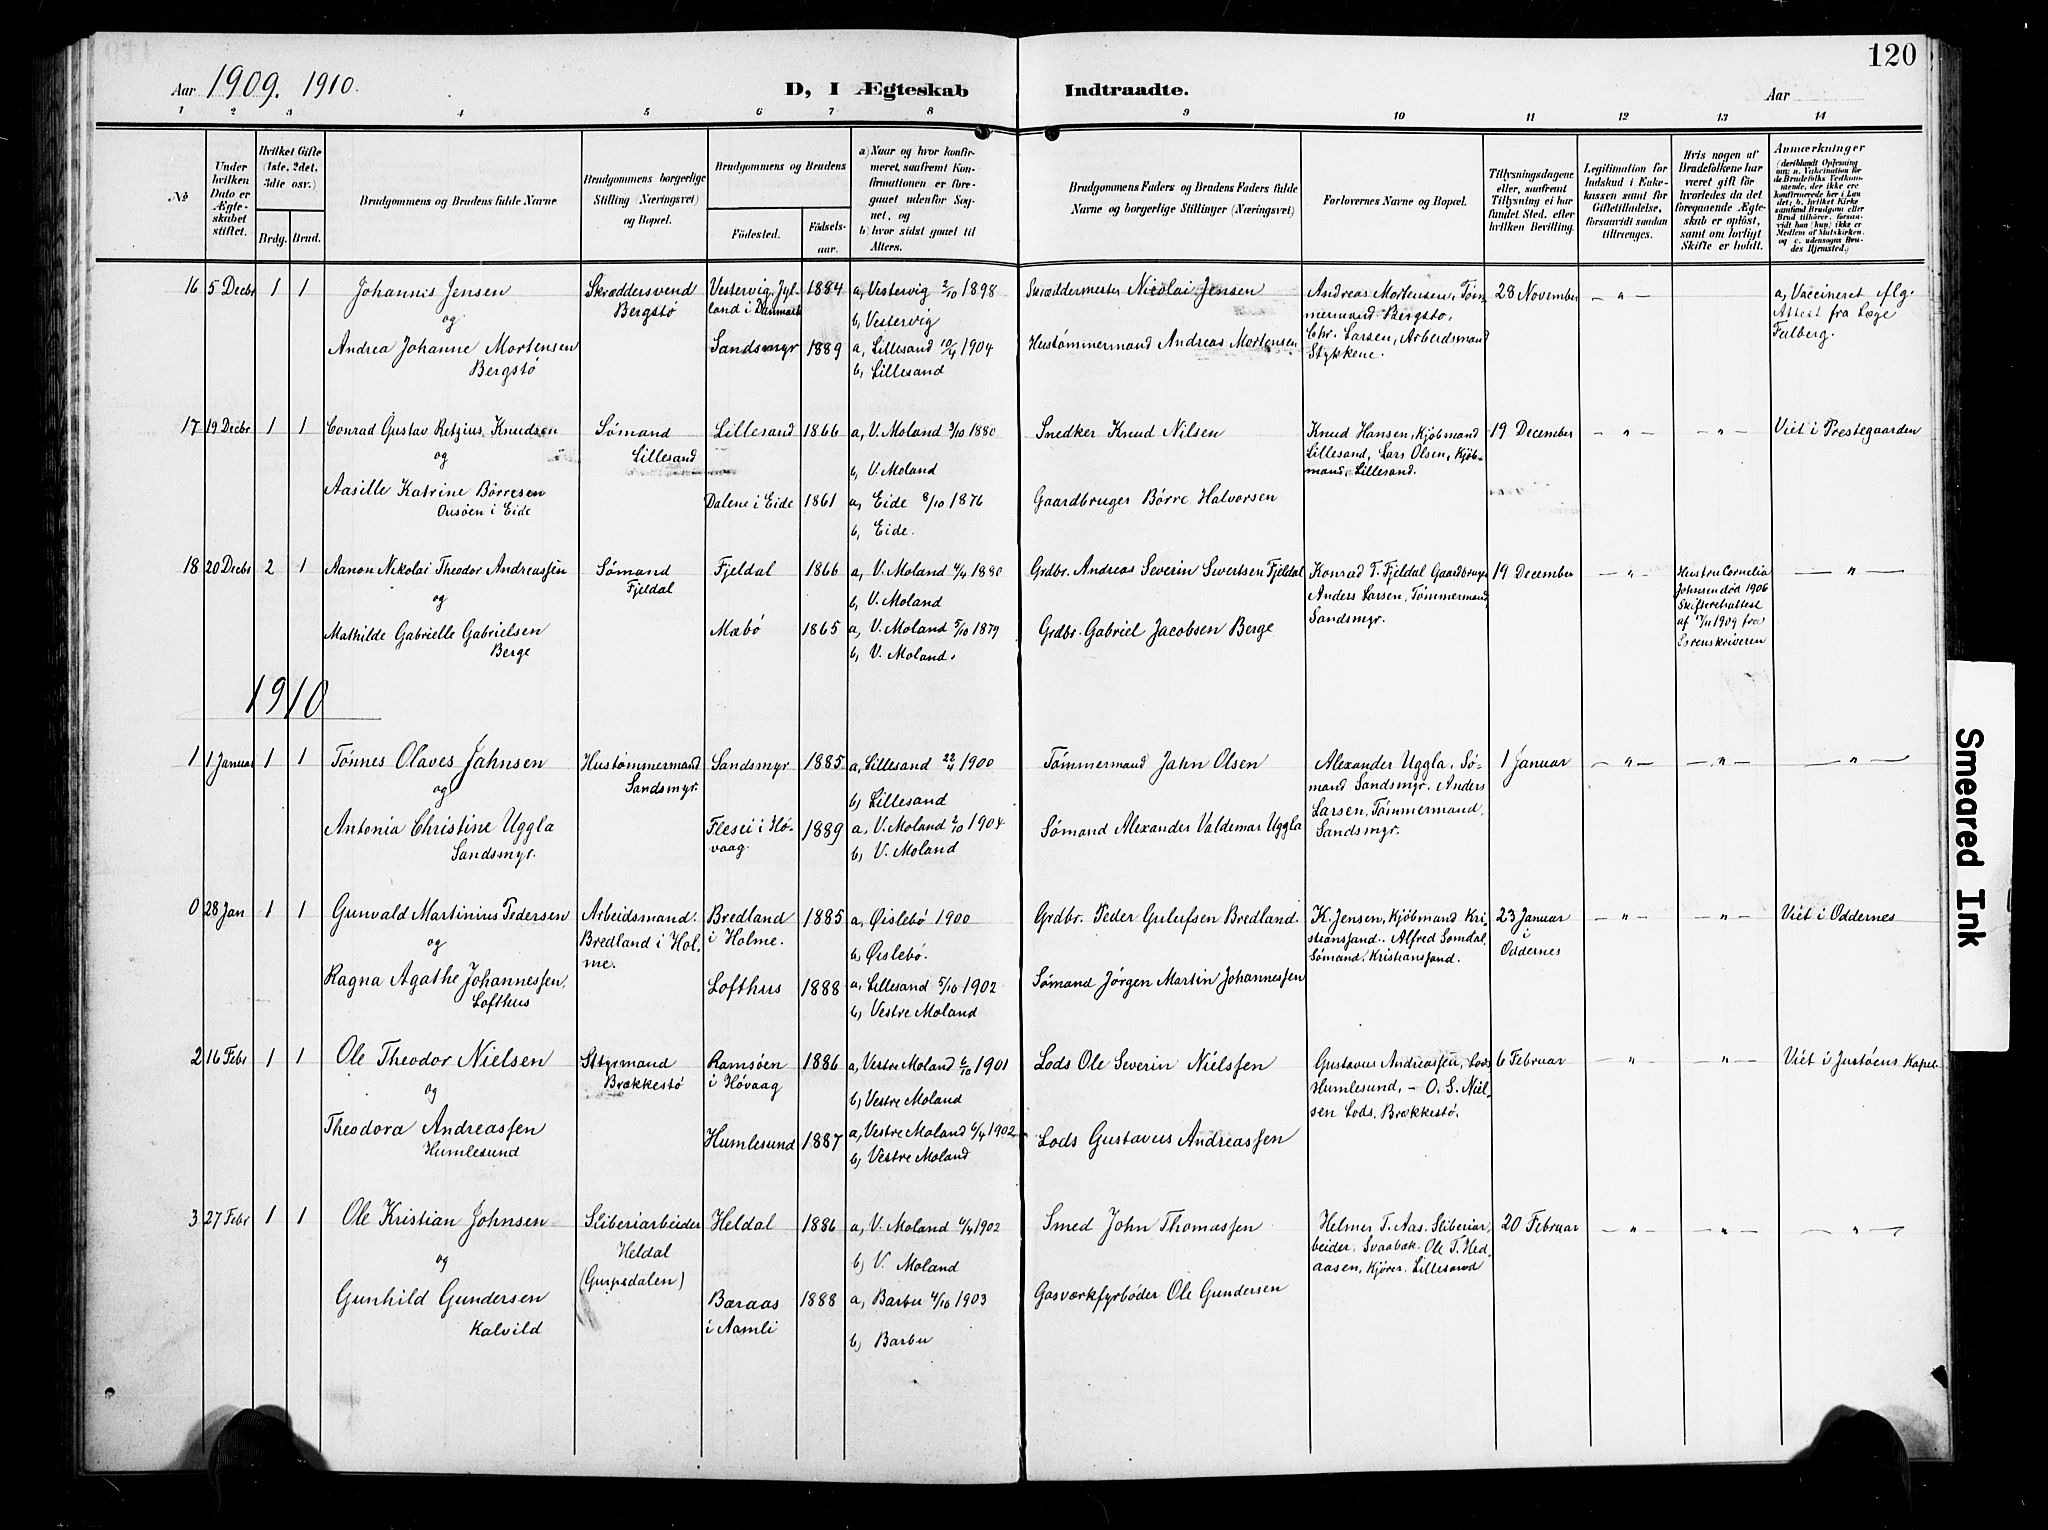 120
Aar 1909. 1910.
D, I Ægteskab Indtraadte.
Aar
1 2 3 4 5 6 7 8 9 10 11 12 13 14
No
Under hvilken Dato er Ægteskabet stiftet.
Hvilket Gifte (1ste, 2det, 3die osv.)
Brdg. Brud.
Brudgommens og Brudens fulde Navne
Brudgommens borgerlige Stilling (Næringsvei) og Bopæl.
Brudgommens og Brudens
Fødested. Fødselsaar.
a) Naar og hvor konfirmeret, saafremt Konfirmationen er foregaaet udenfor Sognet, og
b) hvor sidst gaaet til Alters.
Brudgommens Faders og Brudens Faders fulde Navne og borgerlige Stillinger (Næringsvei)
Forlovernes Navne og Bopæl.
Tillysningsdagene eller, saafremt Tillysning ei har fundet Sted, efter hvilken Bevilling.
Legitimation for Indskud i Enkekassen samt for Giftetilladelse, forsaavidt saadan tiltrænges.
Hvis nogen af Brudefolkene har været gift før hvorledes da det foregaaende Ægteskab er opløst, samt om lovligt Skifte er holdt.
Anmærkninger
16 5 Decbr 1 1 Johannis Jensen
og
Andrea Johanne Mortensen
Bergstø
Skræddersvend
Bergstø
Vestervig, Jylland i Danmark 1884
Sandsmyr 1889
a, Vestervig 2/10 1898
b, Vestervig
a, Lillesand 10/4 1904
b, Lillesand
Skræddermester Nicolai Jensen
Hustømmermand Andreas Mortensen
Andreas Mortensen, Tømmermand Bergstø,
Chr. Larsen, Arbeidsmand
Stykkene.
28 November
— " —
a, Vaccineret iflg.
Attest fra Læge
Falberg.
17 19 Decbr 1 1 Conrad Gustav Retzius Knudsen
og
Aasille Katrine Børresen
i Eide
Sømand
Lillesand
Lillesand 1866
Dalene i Eide 1861
a, V. Moland 3/10 1880
b, V. Moland
a, Eide 8/10 1876
b, Eide.
Snedker Knud Nilsen
Gaardbruger Børre Halvorsen
Knud Hansen, Kjøbmand
Lillesand, Lars Olsen, Kjøbmand, Lillesand.
19 December
— " — — " —
Viet i Prestegaarden
18 20 Decbr 2 1 Aanon Nikolai Theodor Andreassen
og
Mathilde Gabrielle Gabrielsen
Berge
Sømand
Fjeldal
Fjeldal 1866
Mæbø 1865
a, V. Moland 4/4 1880
b, V. Moland
a, V. Moland 5/10 1879
b, V. Moland.
Grdbr. Andreas Severin Sivertsen Fjeldal
Grdbr. Gabriel Jacobsen Berge
Konrad T. Fjeldal Gaardbruger
Anders Larsen, Tømmermand,
Sandsmyr.
19 December
— " —
Hustru Cornelia
Johnsen død 1906
Skifteretsattest
1909 fra
Sorenskriveren
— " —
1910
1 1 Januar 1 1 Tønnes Olaves Jahnsen
og
Antonia Christine Uggla
Sandsmyr.
Hustømmermand
Sandsmyr.
Sandsmyr 1885
Flesei i Høvaag. 1889
a, Lillesand 22/4 1900
b, Lillesand
a, V. Moland 2/10 1904
b, V. Moland
Tømmermand Jahn Olsen
Sømand Alexander Valdemar Uggla
Alexander Uggla, Sømand Sandsmyr. Anders
Larsen, Tømmermand,
Sandsmyr.
1 Januar
— " — — " — — " —
0 28 Jan 1 1 Gunvald Martinius Pedersen
og
Ragna Agathe Johannessen,
Lofthus
Arbeidsmand.
Bredland i Holme.
Bredland i Holme. 1885
Lofthus 1888
a, Øislebø 1900
b, Øislebø.
a, Lillesand 5/10 1902
b, Vestre Moland
Grdbr. Peder Gulufsen Bredland.
Sømand Jørgen Martin Johannessen
K. Jensen, Kjøbmand Kristiansand. Alfred Somdal,
Sømand, Kristiansand.
23 Januar
i
Oddernes
— " — — " —
Viet i Oddernes
2 16 Febr 1 1 Ole Theodor Nielsen
og
Theodora Andreassen
Humlesund
Styrmand
Brækkestø
Ramsøen i Høvaag 1886
Humlesund 1887
a, Vestre Moland 6/10 1901
b, Vestre Moland
a, Vestre Moland 6/4 1902
b, Vestre Moland
Lods Ole Severin Nielssen
Lods Gustavus Andreassen
Gustavus Andreassen, Lods
Humlesund, — O. S. Nielsen Lods, Brækkestø.
6 Februar
— " — — " —
Viet i Justøens Kapel
3 27 Febr 1 1 Ole Kristian Johnsen
og
Gunhild Gundersen
Kalvild
Sliberiarbeider
Heldal
Heldal 1886
Baraas i Aamli 1888
a, V. Moland 6/4 1902
b, V. Moland
a, Barbu 4/10 1903
b, Barbu
Smed John Thomassen
Gasværkfyrbøder Ole Gundersen
Helmer T. Aas, Sliberiarbeider, Svaabæk. Ole T. Hedaasen, Kjører, Lillesand
20 Februar
— " — — " — — " —
Smeared Ink